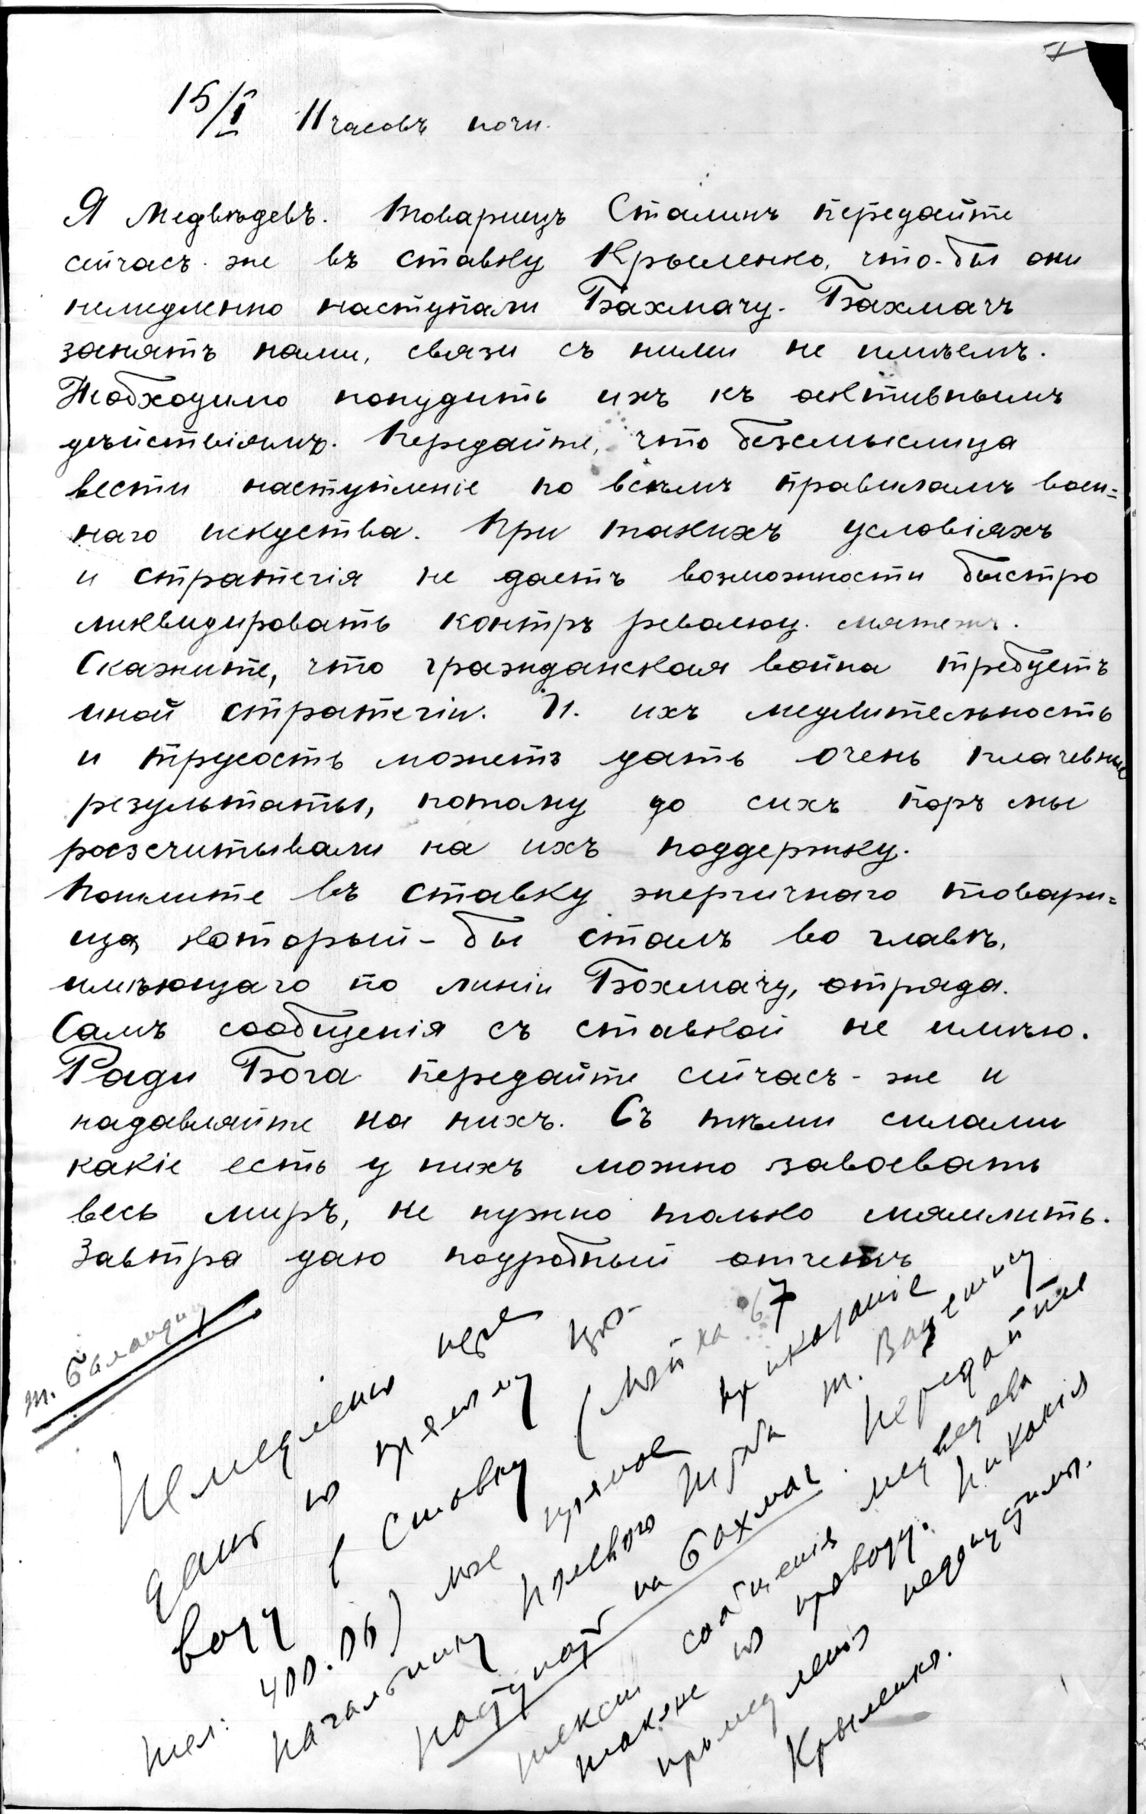 15/I 11 часовъ ночи.
Я Медвѣдевъ. Товарищъ Сталинъ передайте
сейчасъ-же въ ставку Крыленко, что-бы они
немедленно наступали Бахмачу. Бахмачъ
занятъ нами, связи съ ними не имѣемъ.
Необходимо понудить ихъ къ активнымъ
дѣйствіямъ. Передайте, что безсмыслица
вести наступленіе по всѣмъ правиламъ воен=
наго искуства. При такихъ условіяхъ
и стратегія не даетъ возможности быстро
ликвидировать контръ революц. мятежъ.
Скажите, что гражданская война требуетъ
иной стратегіи. И. ихъ медлительность
и трусость можетъ дать очень плачевные
результаты, потому до сихъ поръ мы
разсчитывали на ихъ поддержку.
Пошлите въ ставку энергичнаго товари=
ща, который-бы сталъ во главѣ,
имѣющаго по линіи Бохмачу, отряда.
Самъ сообщенія съ ставкой не имѣю.
Ради Бога передайте сейчасъ-же и
надавляйте на нихъ. Съ тѣми силами
какіе есть у нихъ можно завоевать
весь миръ, не нужно только мямлить.
Завтра даю подробный отчетъ
7
Немедленно пере
дать по прямому про-
воду в Ставку (Мойка 67
тел: 400.06) мое прямое приказаніе
начальнику полевого Штаба т. Вацетису
наступать на Бахмач. Передайте
текст сообщенія Медведева
также по проводу. Никакія
промедленія недопустимы.
Крыленко.